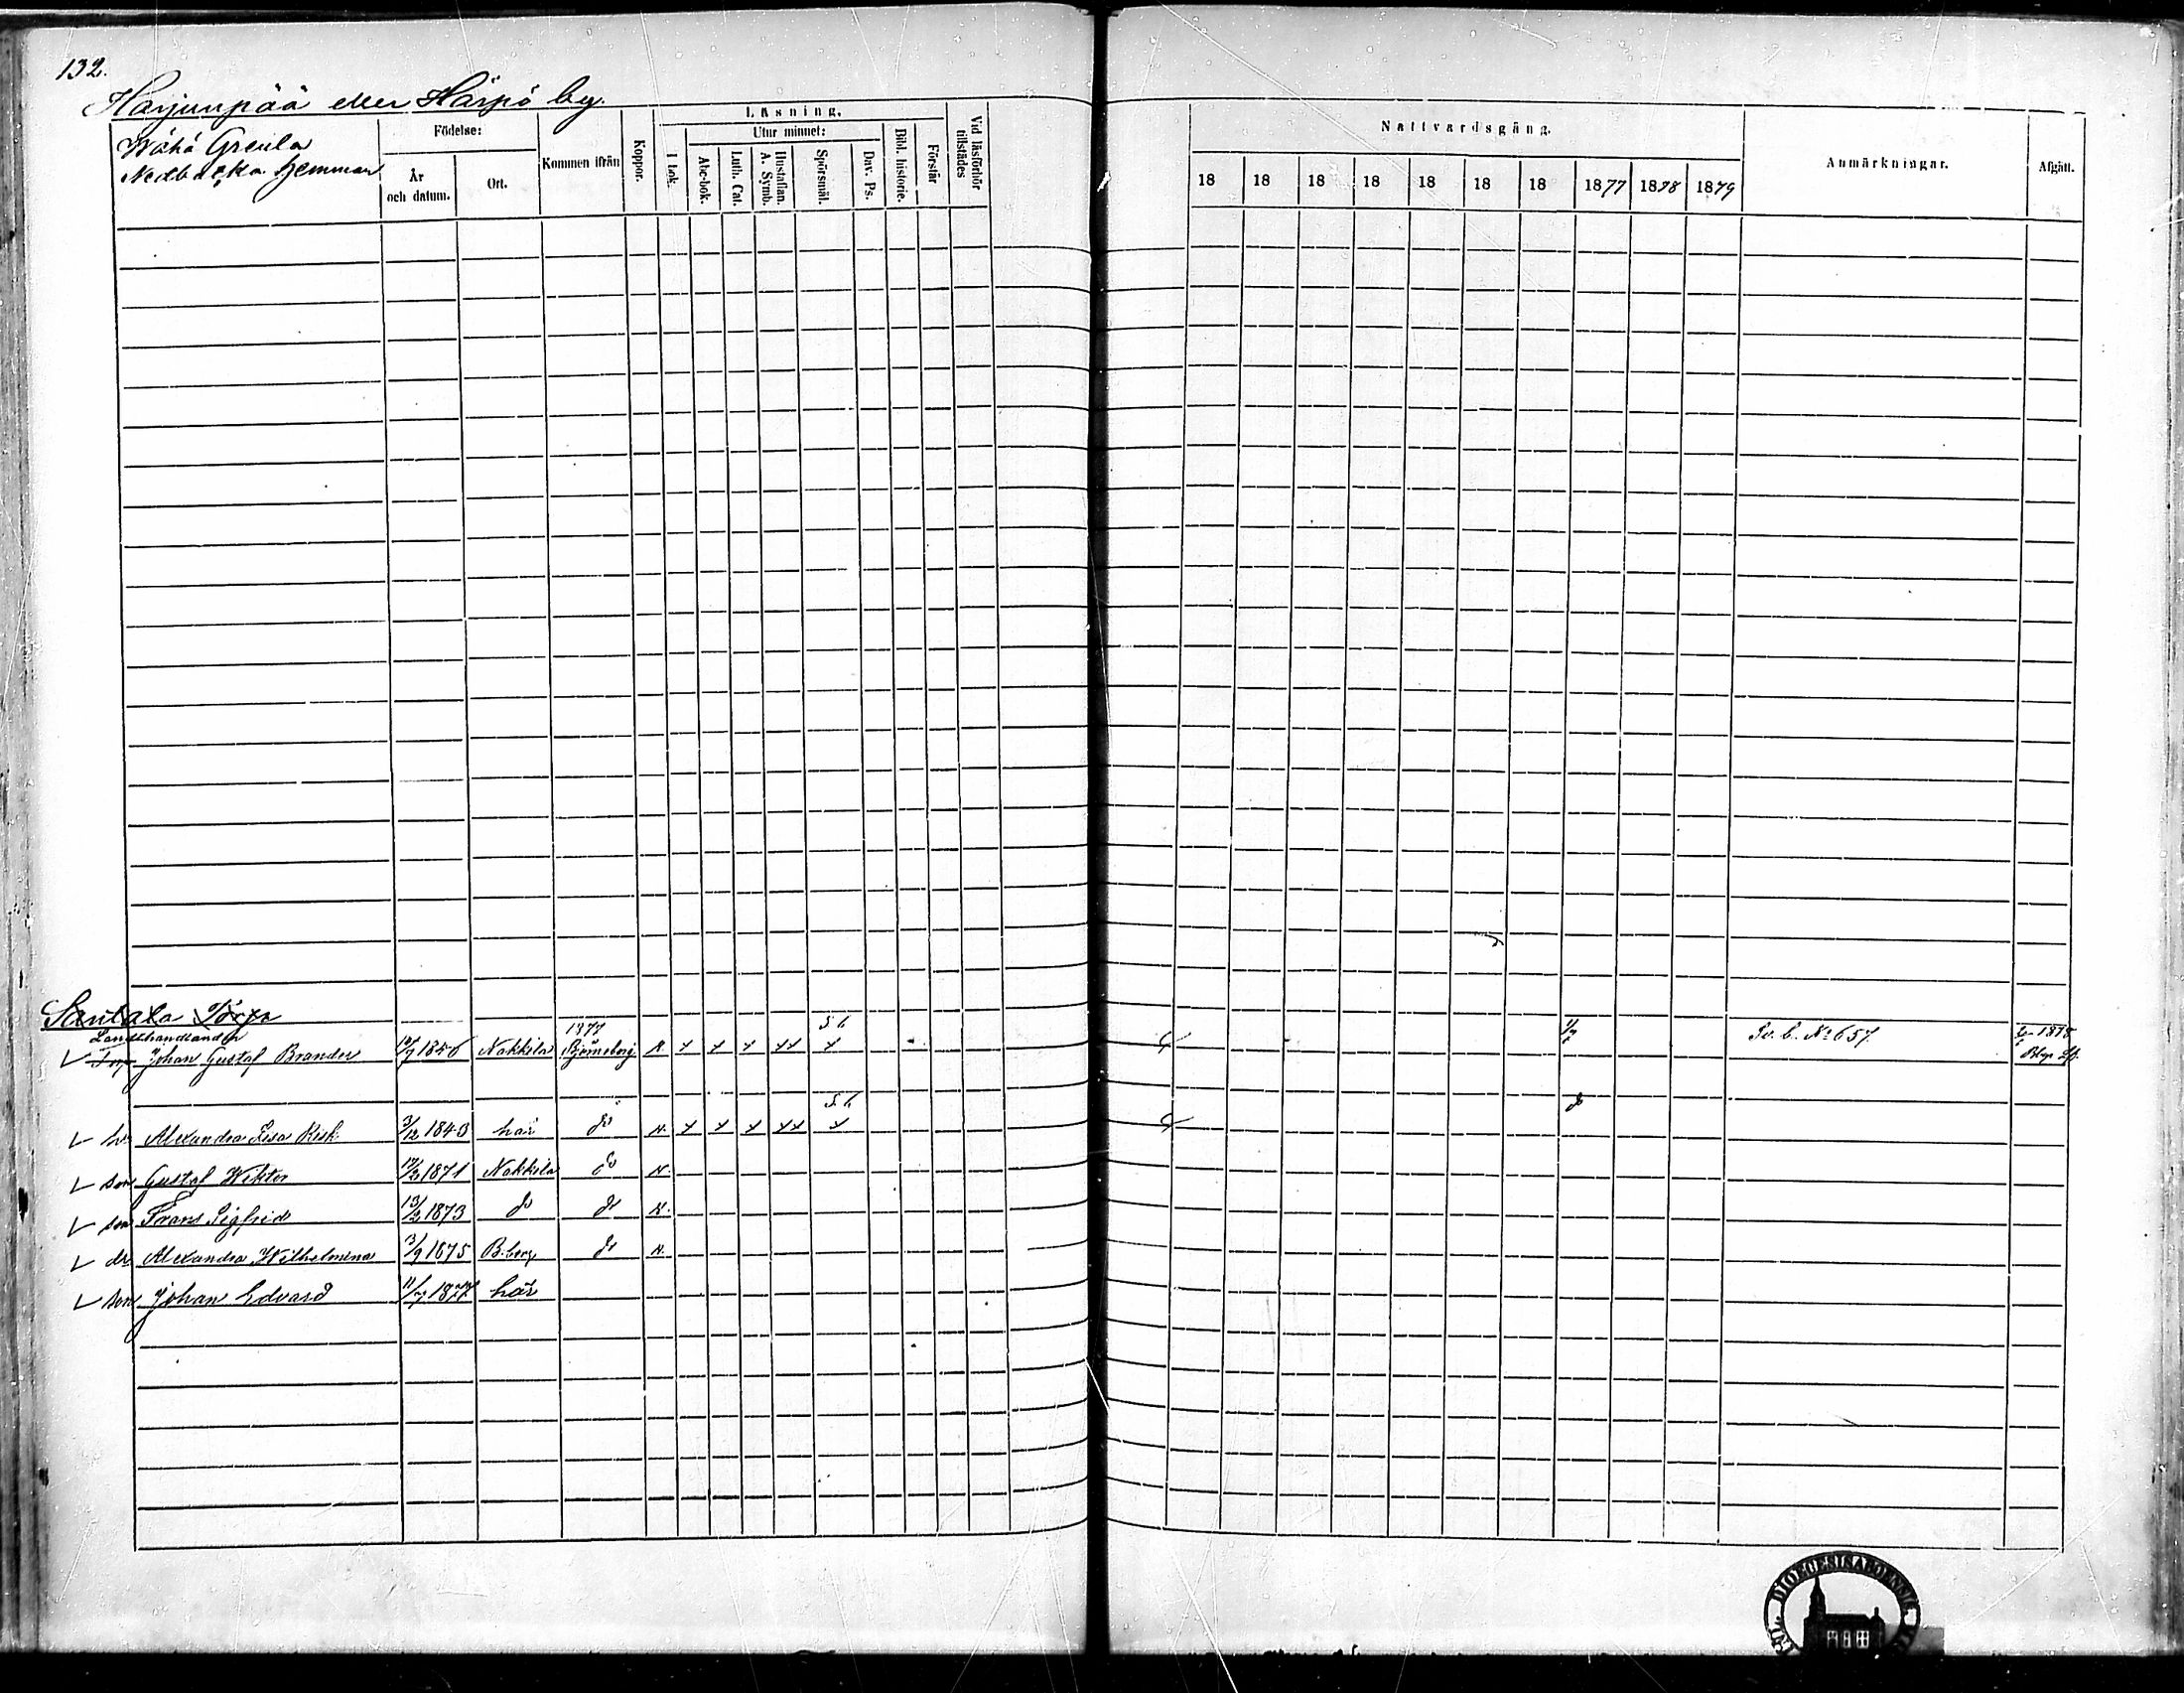 132.
Harjunpää eller Härpö by.
Wähä Greula
Nedbacka hemman
Födelse:
År och datum.
Ort.
Kommen ifrån
Koppor.
Läsning.
I bok.
Utur minnet:
Abc-bok.
Luth. Cat.
A. Symb.
Hustaflan.
Spörsmål.
Dav. Ps.
Bibl. historie.
Förstår
Vid läsförhör tillstädes
Nattvardsgång.
18 18 18 18 18 18 18 1877 1878 1879
Anmärkningar.
Afgått.
Santala Torp
Landthandlanden 1877 5 6
Torp Johan Gustaf Brander 1846 Nakkila Björneborg R. x x x xx x 1/7 Sv. b. No 657 1878
5 6
hu Alexandra Lisa 3/12 1843 här do N. x x x xx x do
son Gustaf Wiktor 1871 Nakkila do N.
son Frans Sigfrid 13/2 1873 do do N.
dr Alexandra Wilhelmina 3/9 1875 B.borg do N.
son Johan Edvard 11/7 1877 här
DIOECESIS ABOENSIS